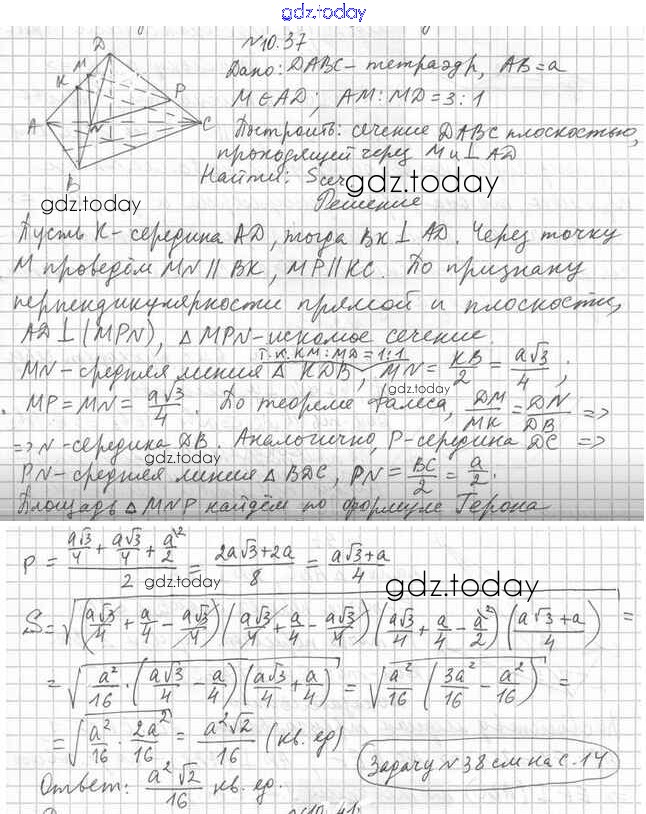 gdz.today
№10.37
Дано: DABC - тетраэдр, AB = a
M ∈ AD; AM:MD = 3:1
Построить: сечение DABC плоскостью,
проходящей через M и ⊥ AD
Найти: Sсеч.
gdz.today
Решение
D
M
K
P
A
N
C
B
gdz.today
Пусть K - середина AD, тогда BK ⊥ AD. Через точку
M проведём MN || BK, MP || KC. По признаку
перпендикулярности прямой и плоскости,
AD ⊥ (MPN), △ MPN - искомое сечение.
т.к. KM:MD = 1:1
MN - средняя линия △ KDB, MN = KB/2 = a√3/4;
gdz.today
MP = MN = a√3/4. По теореме Фалеса, DM/MK = DN/DB =>
=> N - середина DB. Аналогично, P - середина DC =>
gdz.today
PN - средняя линия △ BDC, PN = BC/2 = a/2.
Площадь △ MNP найдём по формуле Герона
p = (a√3/4 + a√3/4 + a/2)/2 = (2a√3+2a)/8 = (a√3+a)/4
gdz.today
gdz.today
S = √((a√3/4 + a/4 - a√3/4)(a√3/4 + a/4 - a√3/4)(a√3/4 + a/4 - a/2)((a√3+a)/4)) =
= √(a²/16 · (a√3/4 - a/4)(a√3/4 + a/4)) = √(a²/16 (3a²/16 - a²/16)) =
= √(a²/16 · 2a²/16) = a²√2/16 (кв. ед)
gdz.today
Задачу №38 см на с. 14
Ответ: a²√2/16 кв. ед.
gdz.today
№10.41.